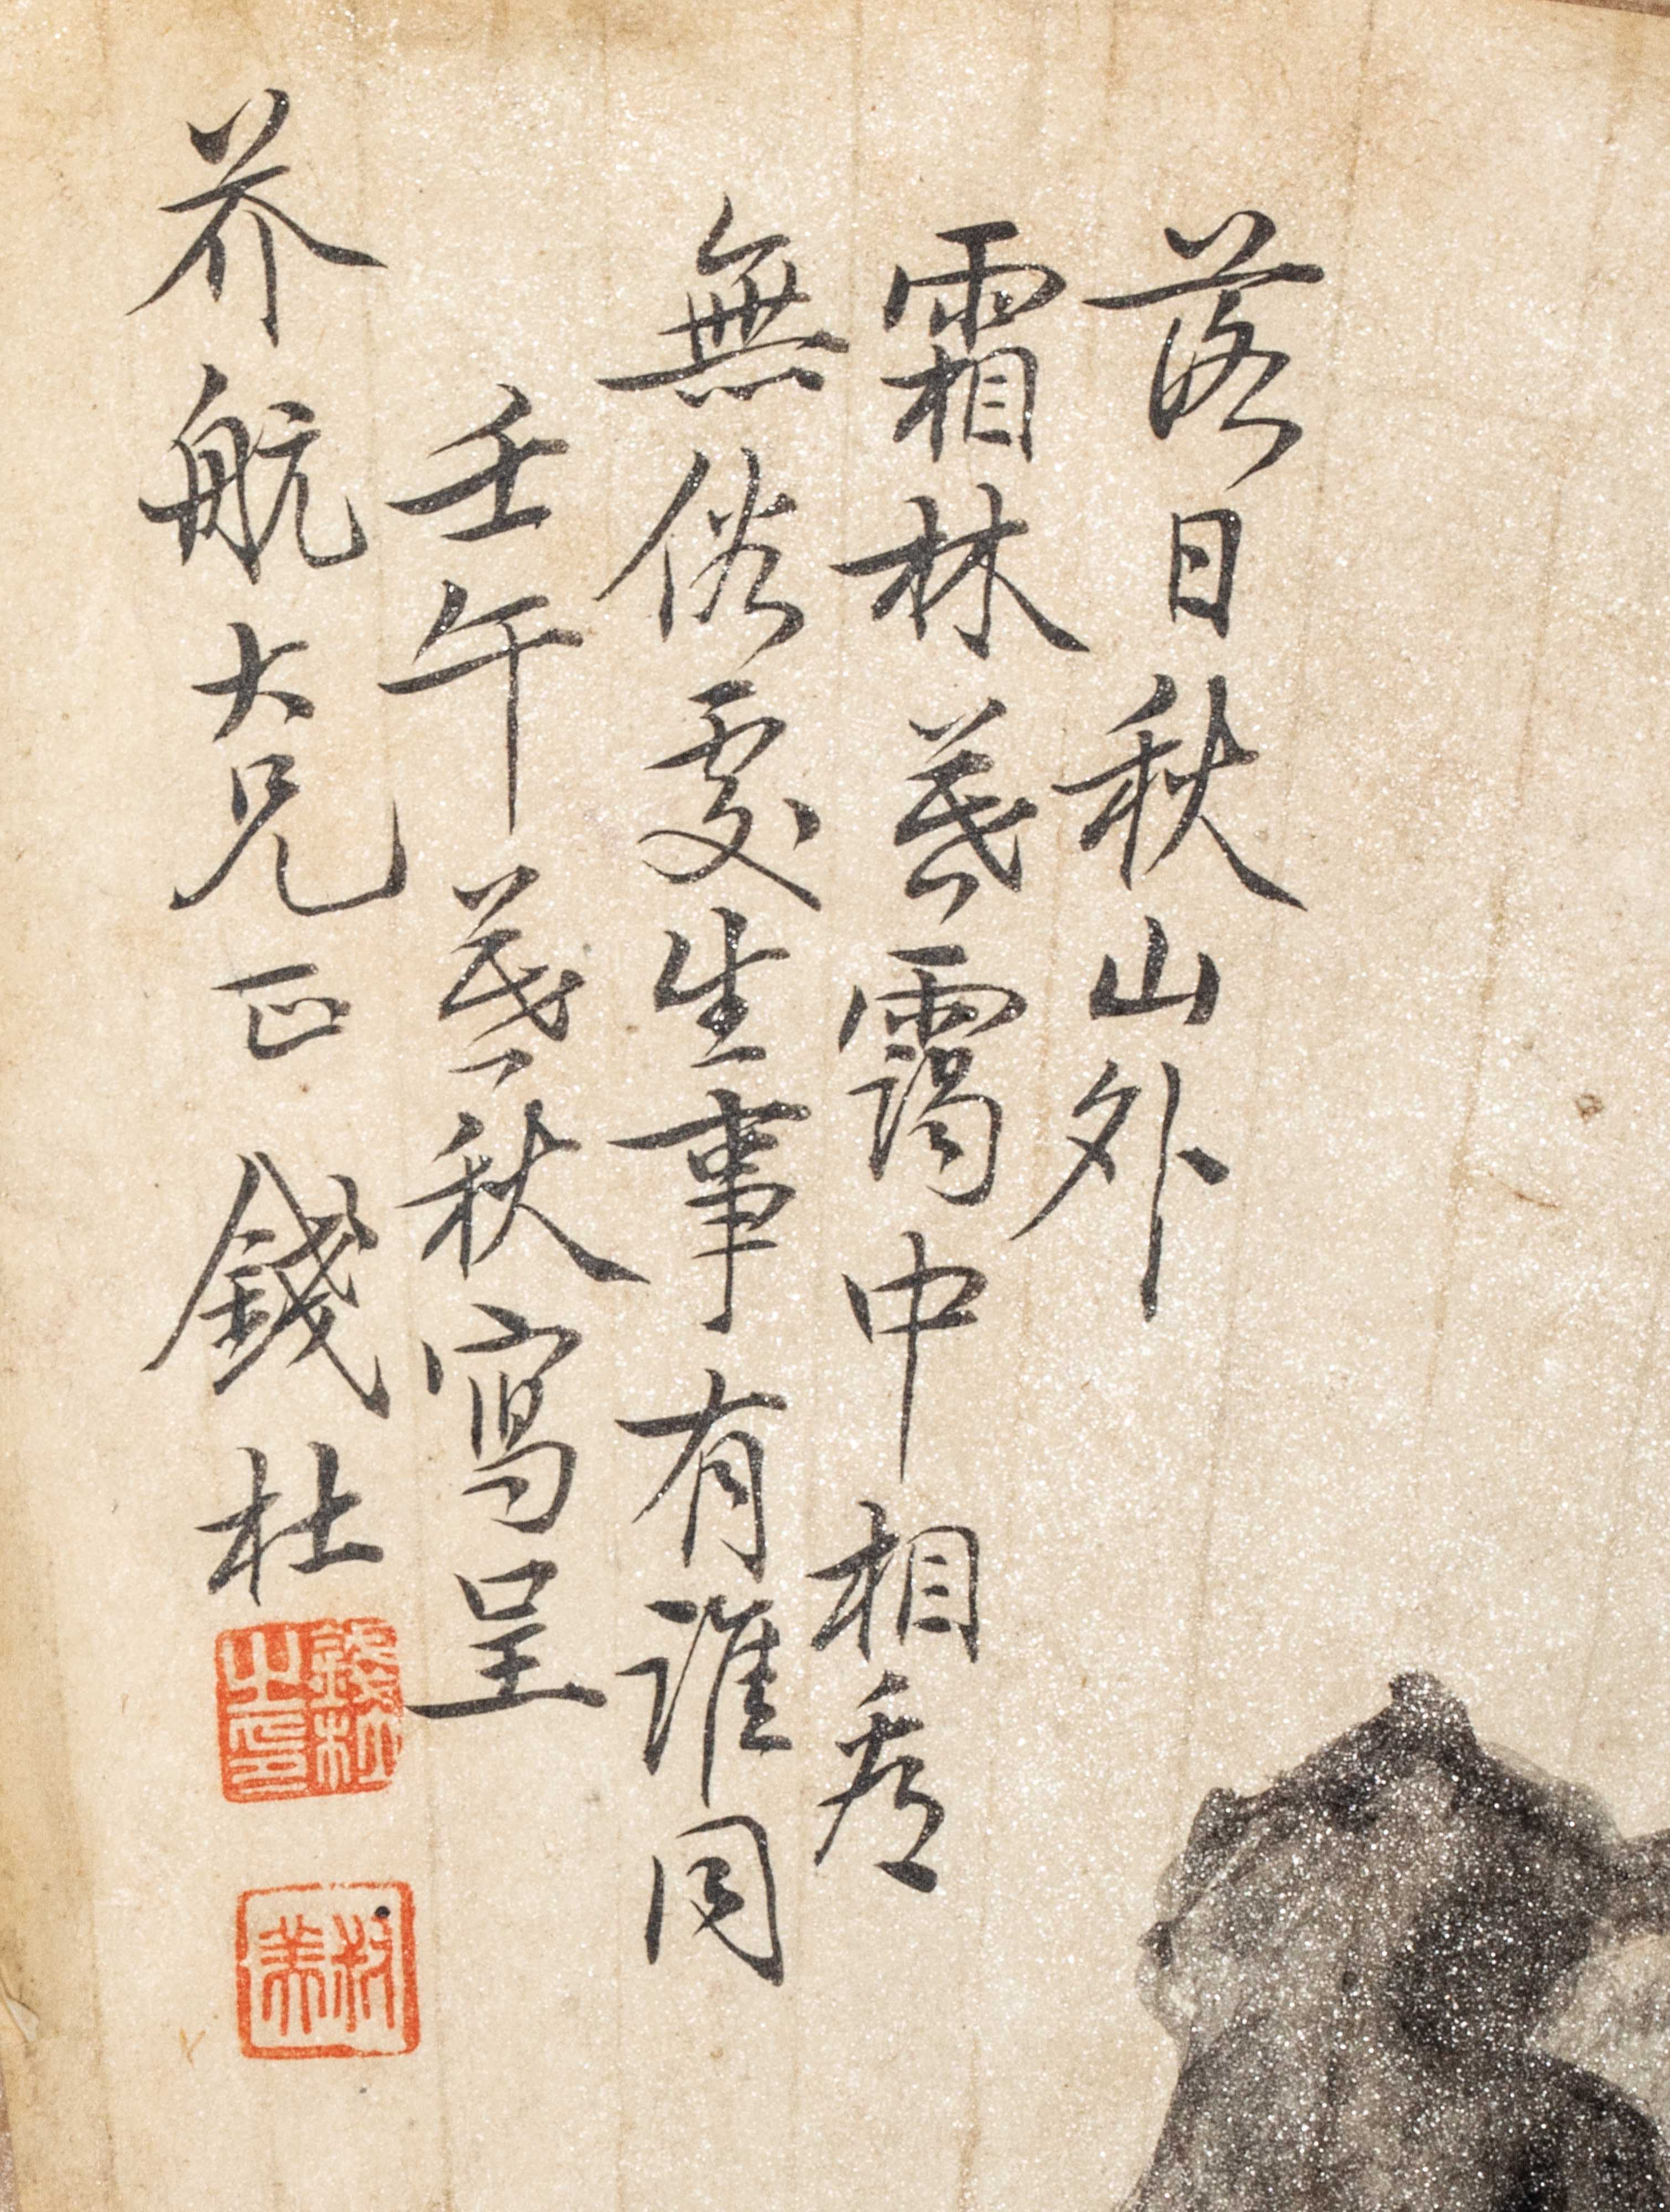 落日秋山外
霜林暮靄中相看
無俗處生事有誰同
壬午暮秋寫呈
芥航大兄正 錢杜
錢杜之印
叔美